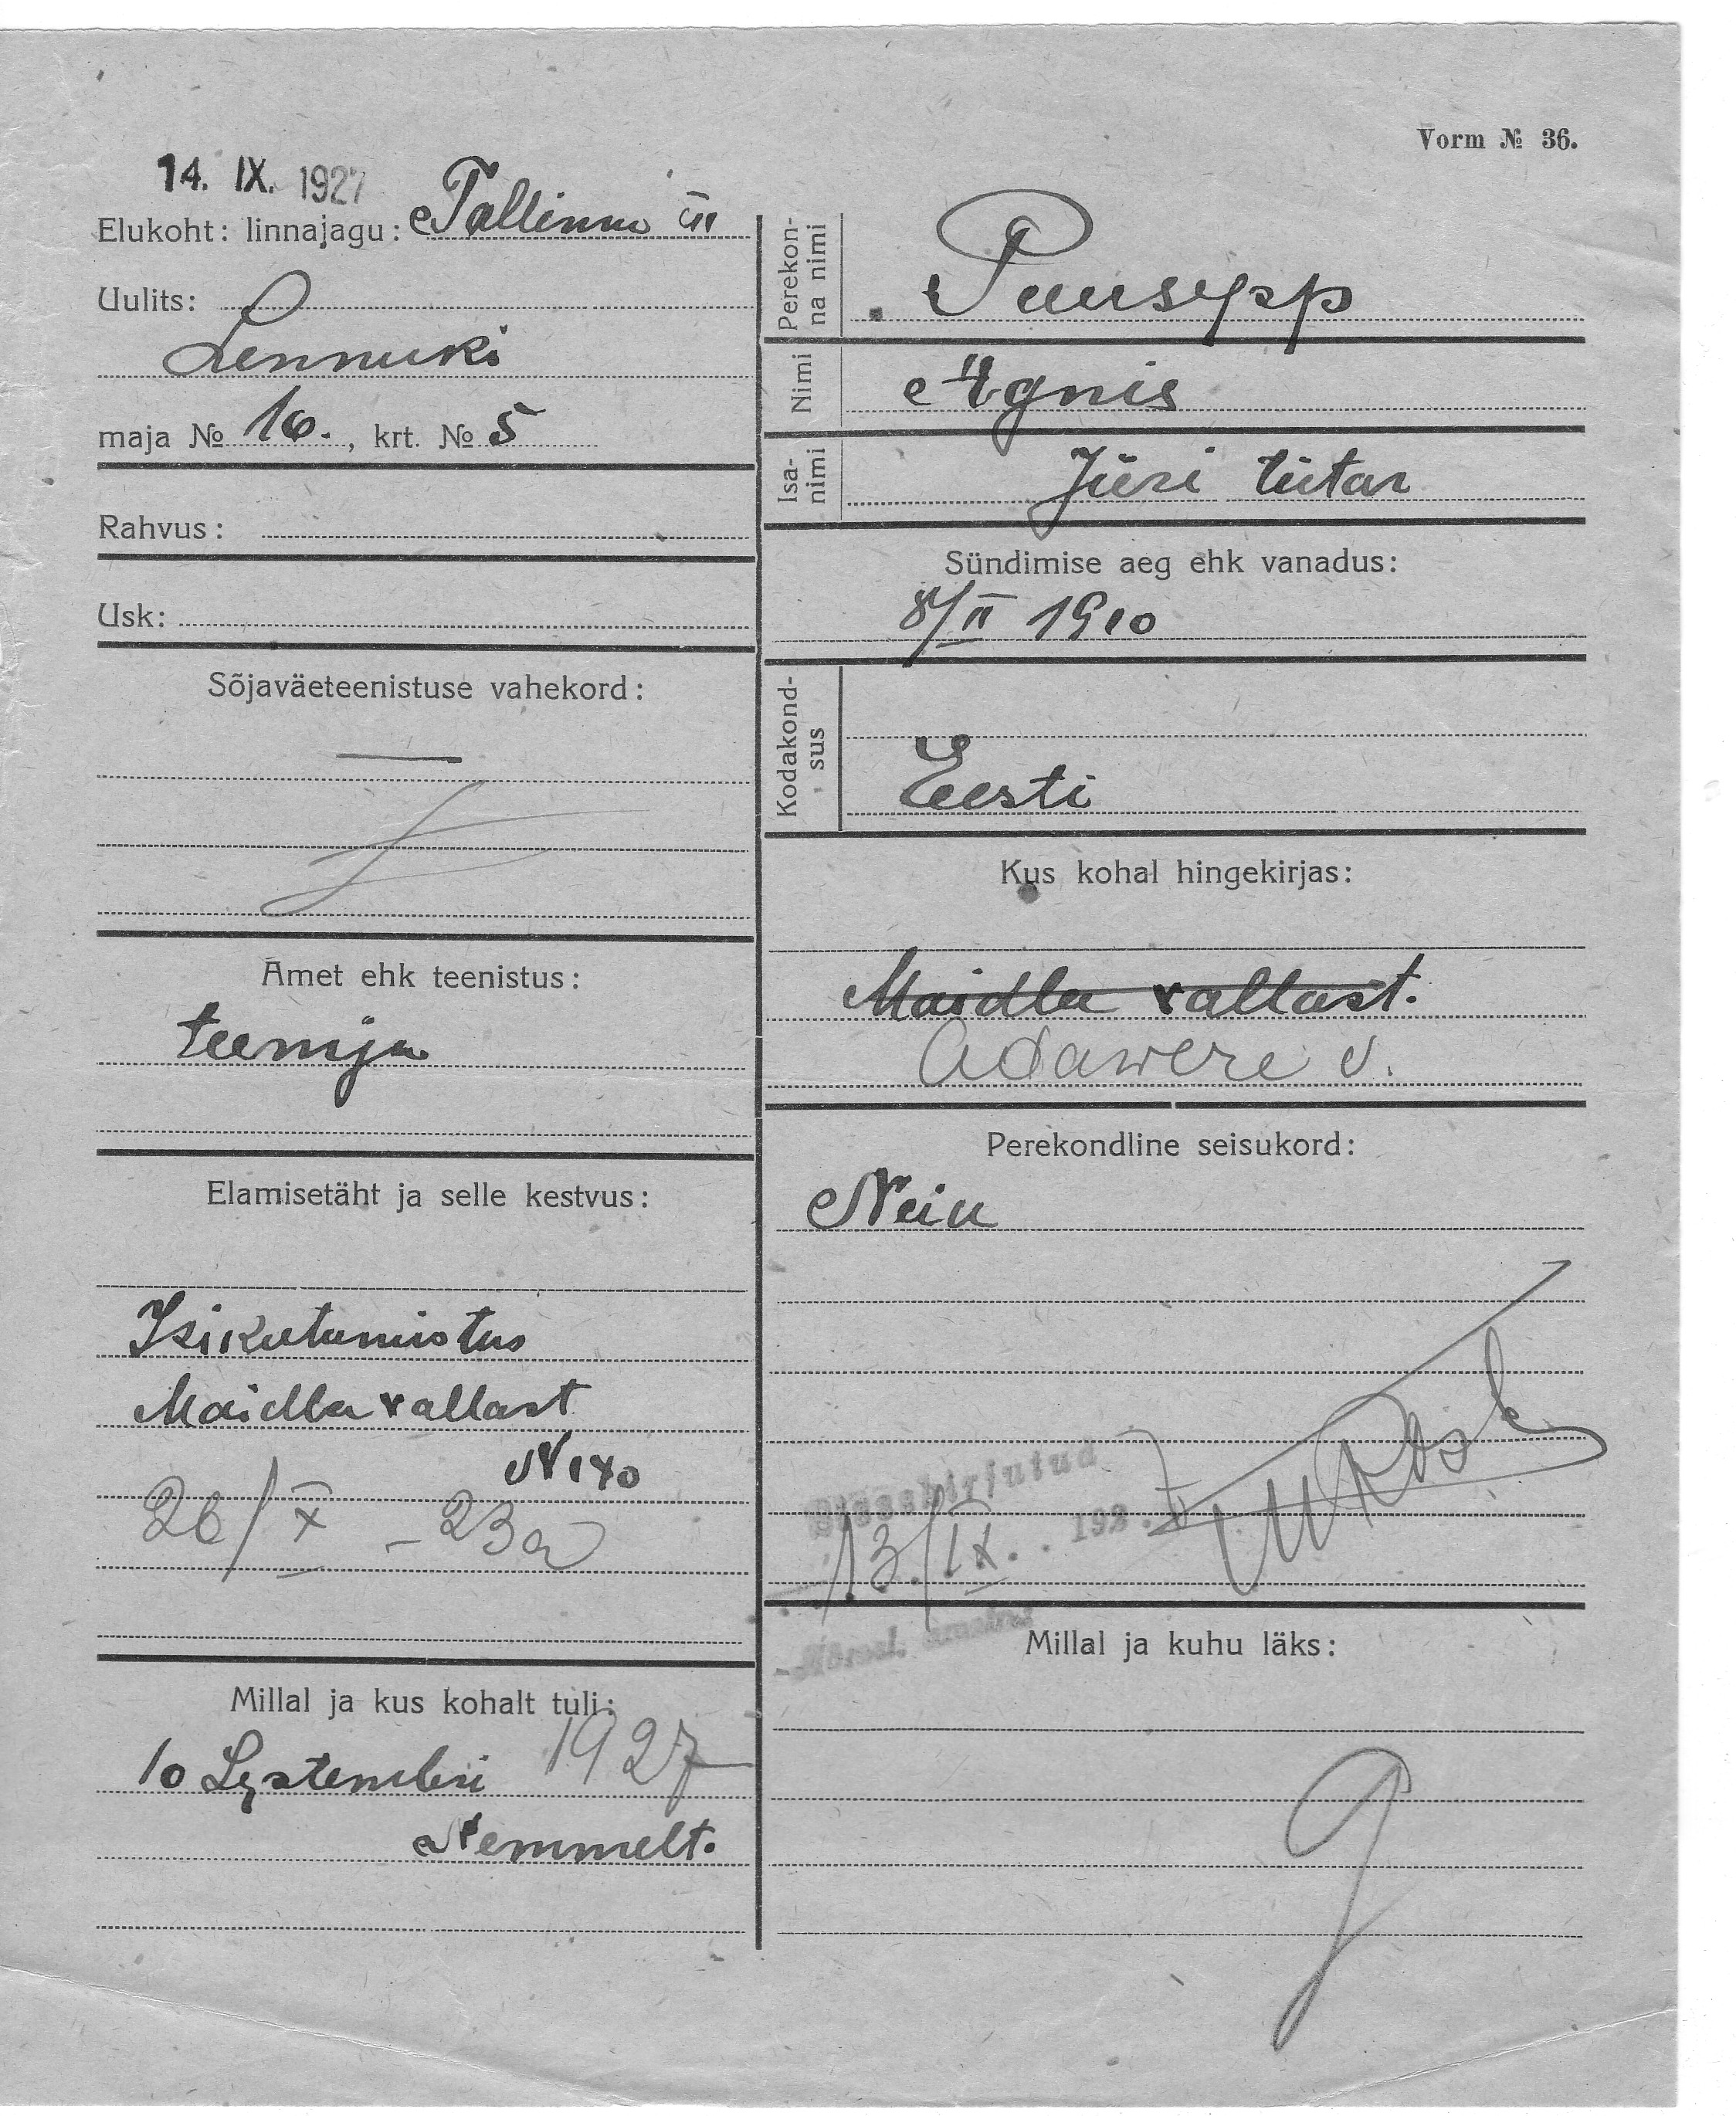 Vorm № 36.
14. IX. 1927
Elukoht: linnajagu: Tallinna III
Uulits:
Lennuki
maja № 16., krt. № 5
Rahvus:
Usk:
Sõjaväeteenistuse vahekord:
—
Amet ehk teenistus:
teenija
Elamisetäht ja selle kestvus:
Isikutunistus
Maidla vallast
N 140
26/X – 23 a
Millal ja kus kohalt tuli:
10 Septembri 1927
Nemmelt.
Perekonna nimi
Puusepp
Nimi
Agnis
Isanimi
Jüri tütar
Sündimise aeg ehk vanadus:
8/II 1910
Kodakondsus
Eesti
Kus kohal hingekirjas:
Maidla vallast.
Adawere v.
Perekondline seisukord:
Neiu
Sissekirjutud
13/IX. 192
Millal ja kuhu läks: